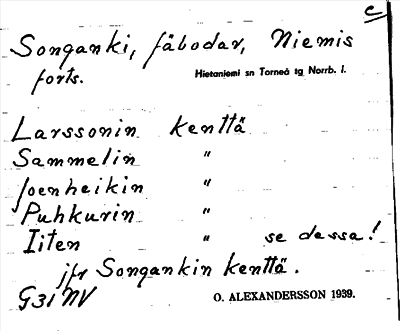 c
Songanki, fäbodar, Niemis
forts.
Hietaniemi sn Torneå tg Norrb. l.
Larssonin kenttä
Sammelin "
Joenheikin "
Puhkurin "
Iiten " se dessa!
jfr Songankin kenttä.
G31 NV
O. ALEXANDERSSON 1939.